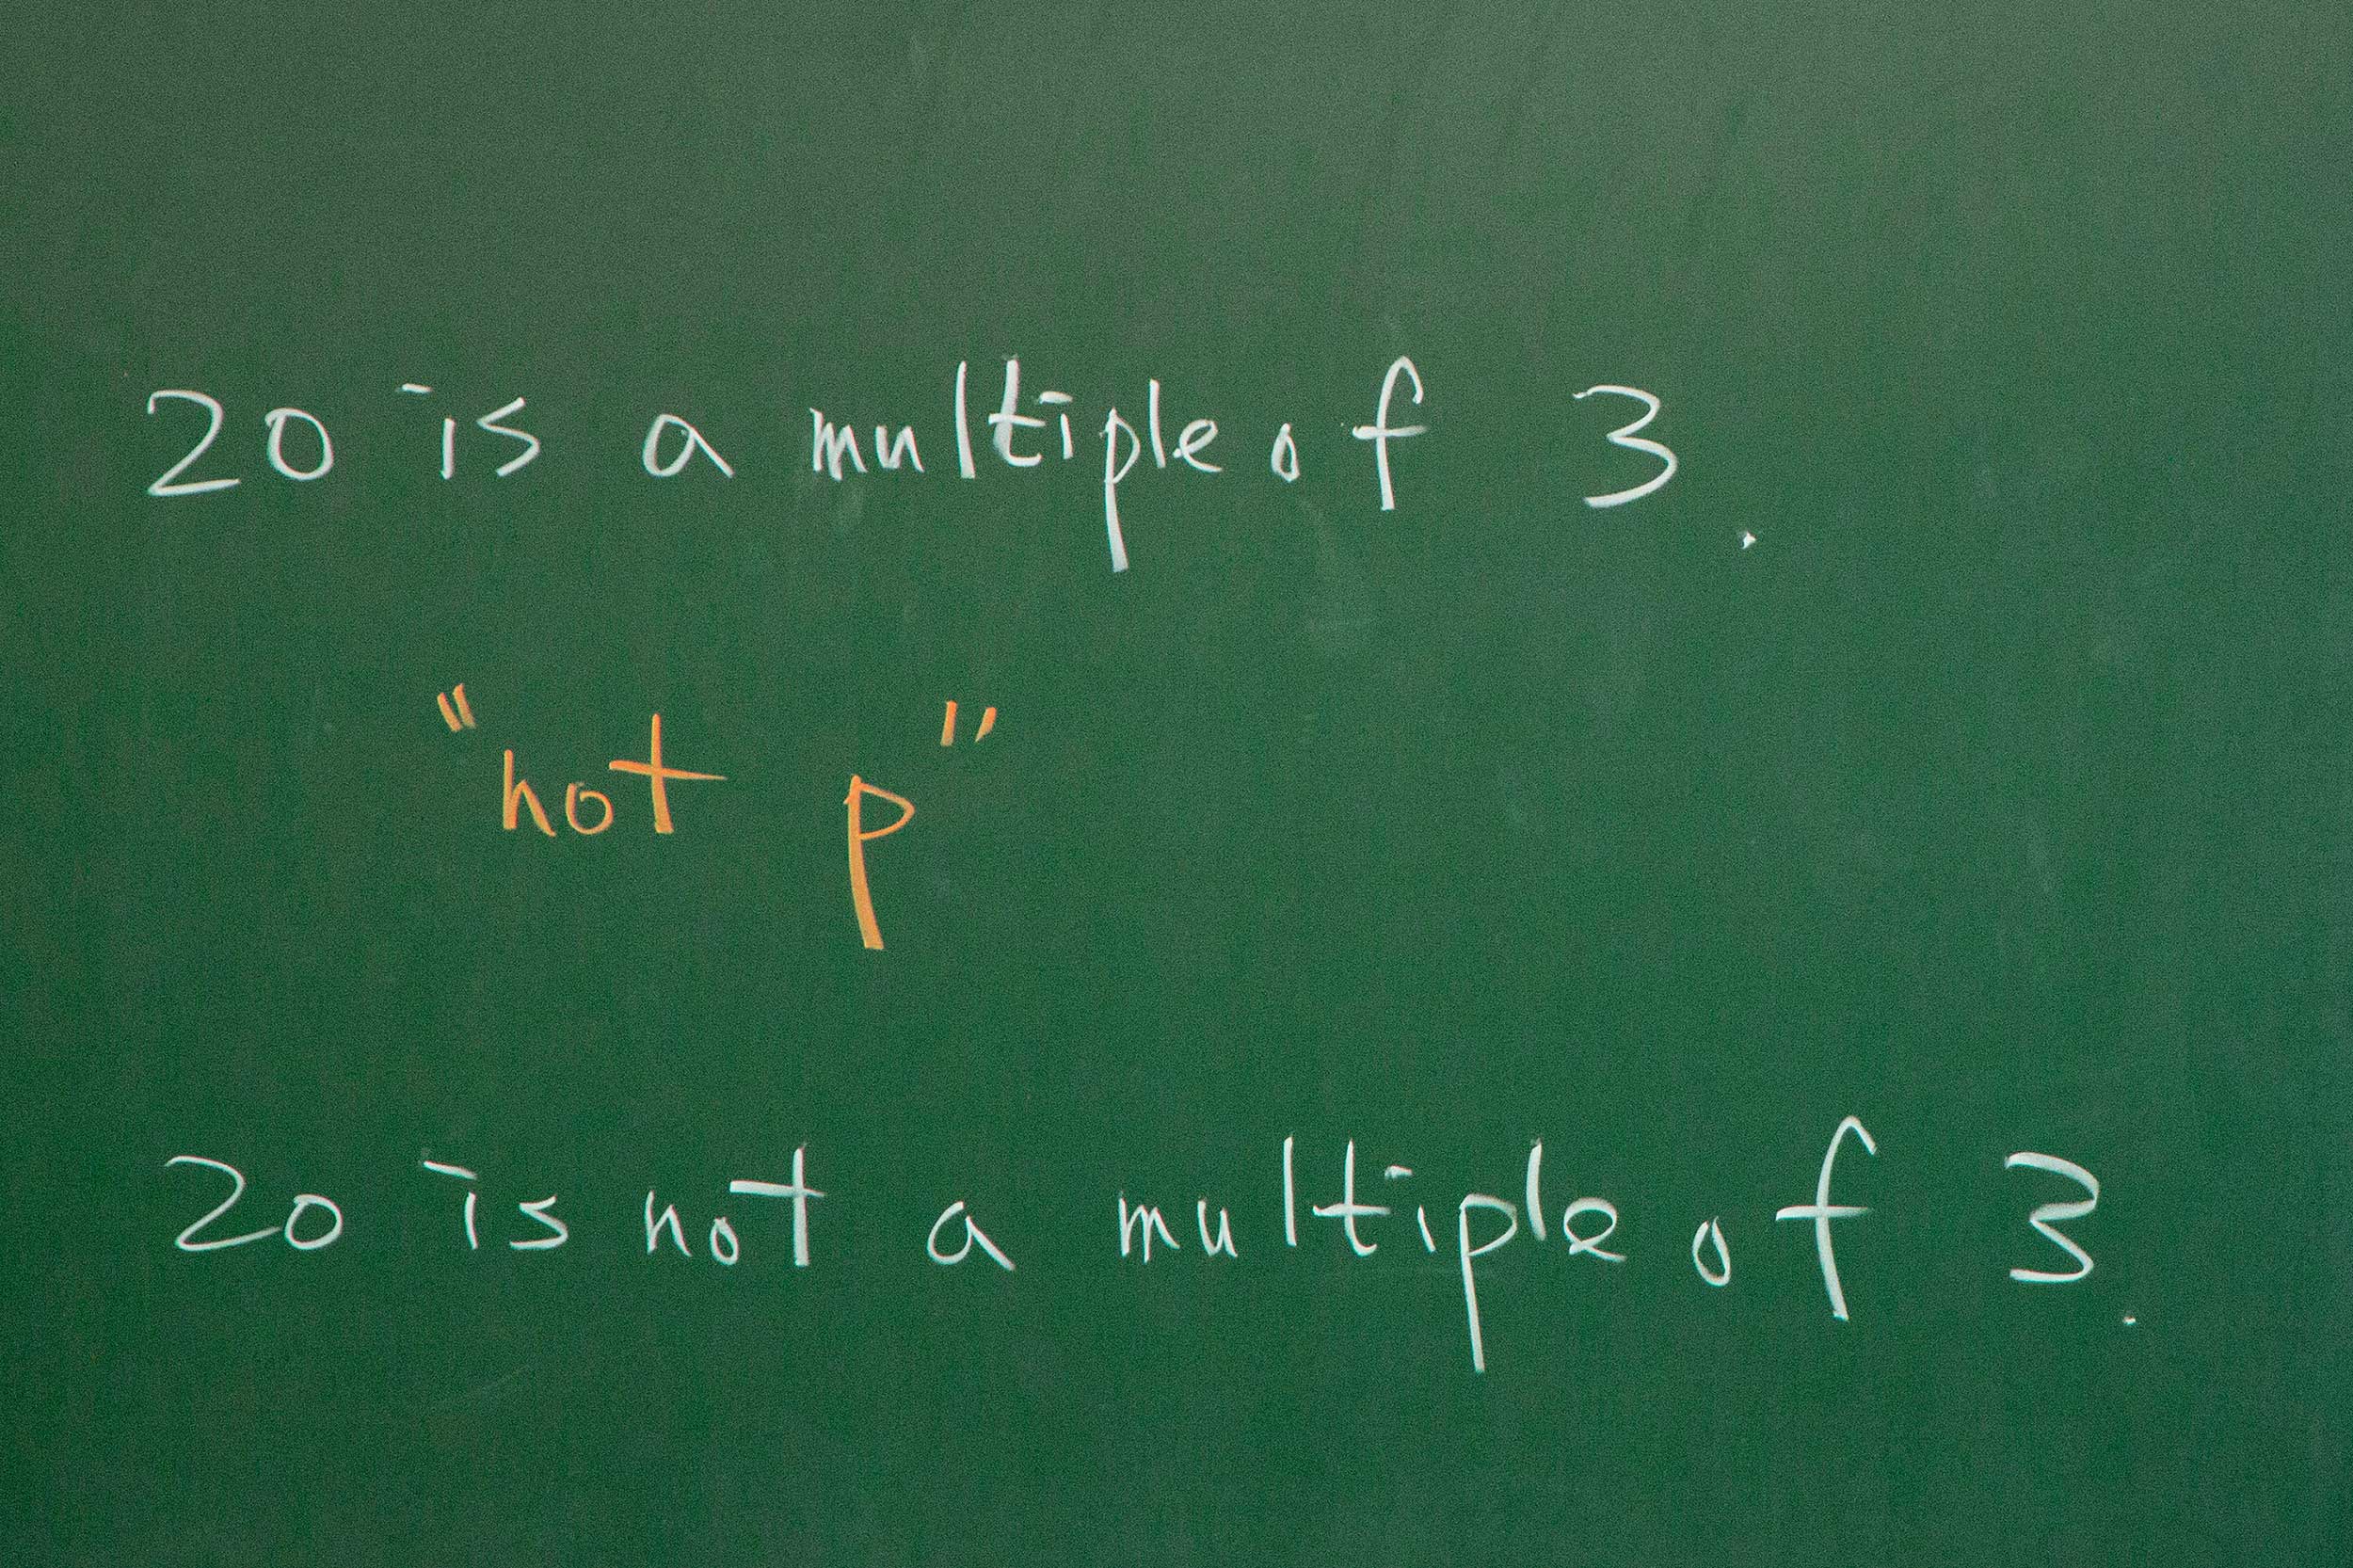 20 is a multiple of 3.
"not p"
20 is not a multiple of 3.